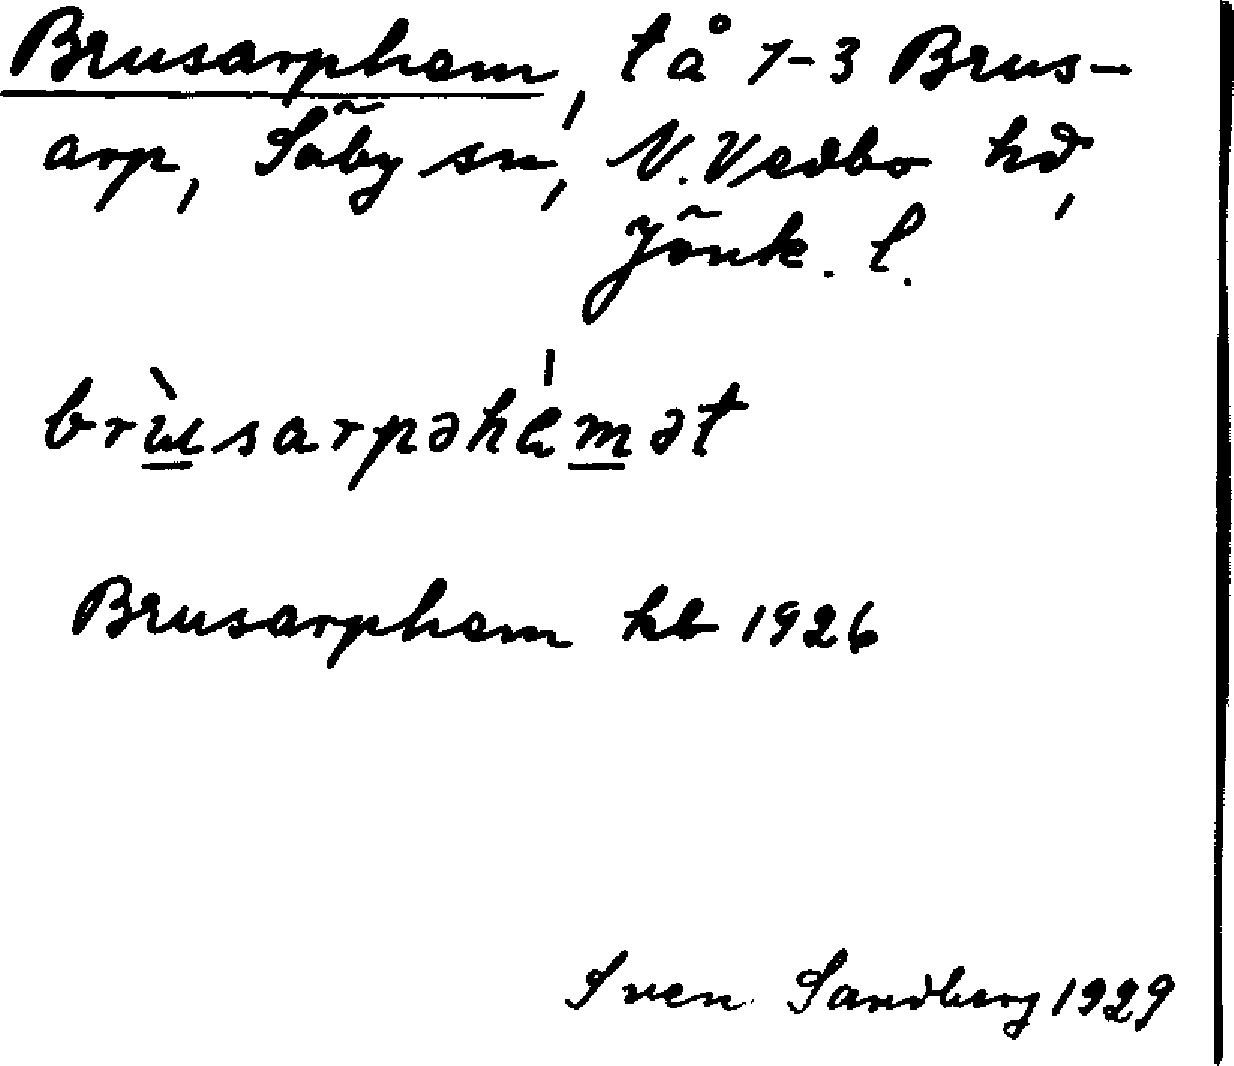 Brusarphem, t å 1-3 Brus-
arp, Säby sn, N. Vedbo hd,
Jönk. l.
brùsarpəhémət
Brusarphem kb 1926
Sven Sandberg 1929